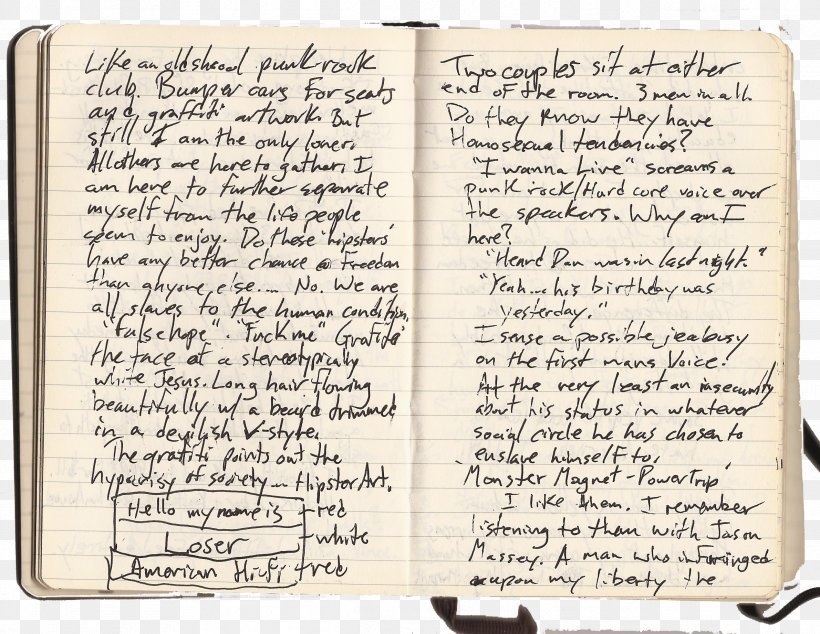 Like an oldshcool punk rock
club. Bumper cars for seats
and graffiti artwork. But
still I am the only loner.
All others are here to gather, I
am here to further separate
myself from the life people
seem to enjoy. Do these 'hipsters'
have any better chance @ Freedom
than anyone else.... No. We are
all slaves to the human condition.
"False hope". "Fuck me" Grafiti
the face of a stereotypically
white Jesus. Long hair flowing
beautifully w/ a beard trimmed
in a devilish V-style.
The grafiti points out the
hypocrisy of society... Hipster Art.
Hello my name is - red
Loser - white
American Hifi - red
Two couples sit at either
end of the room. 3 men in all.
Do they know they have
Homosexual tendencies?
"I wanna Live" screams a
punk rock/Hard core voice over
the speakers. Why am I
here?
"Heard Dan was in last night."
"Yeah... his birthday was
yesterday."
I sense a possible jealousy
on the first mans voice.
At the very least an insecurity
about his status in whatever
social circle he has chosen to
enslave himself to.
'Monster Magnet - PowerTrip'
I like them. I remember
listening to them with Jason
Massey. A man who infuringed
upon my liberty the